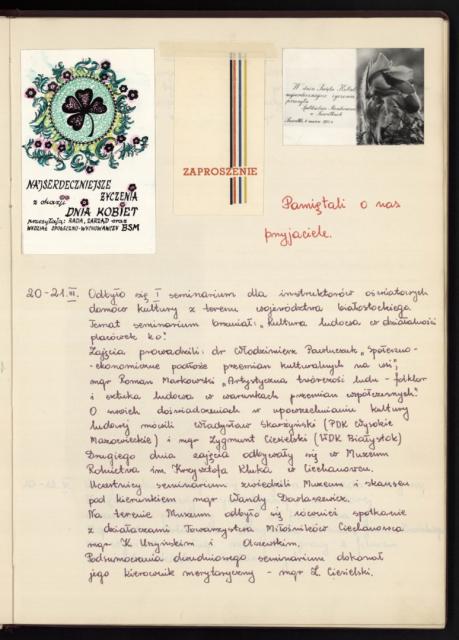 NAJSERDECZNIEJSZE
ŻYCZENIA
z okazji
DNIA KOBIET
przesyłają: RADA, ZARZĄD oraz
WYDZIAŁ SPOŁECZNO-WYCHOWAWCZY BSM
ZAPROSZENIE
W dniu Święta Kobiet
najserdeczniejsze życzenia
przesyła
Spółdzielnia Mieszkaniowa
w Suwałkach
Suwałki, 8 marca
Pamiętali o nas
przyjaciele.
20-21.III. Odbyło się I seminarium dla instruktorów oświatowych
domów kultury z terenu województwa białostockiego
Temat seminarium brzmiał: „Kultura ludowa w działalności
placówek k.o."
Zajęcia prowadzili: dr Włodzimierz Pawluczuk „Społeczno-
-ekonomiczne podłoże przemian kulturalnych na wsi",
mgr Roman Markowski „Artystyczna twórczość ludu - folklor
i sztuka ludowa w warunkach przemian współczesnych".
O swoich doświadczeniach w upowszechnianiu kultury
ludowej mówili Władysław Skarzyński (PDK Wysokie
Mazowieckie) i mgr Zygmunt Ciesielski (WDK Białystok)
Drugiego dnia zajęcia odbywały się w Muzeum
Rolnictwa im. Krzysztofa Kluka w Ciechanowcu.
Uczestnicy seminarium zwiedzili Muzeum i skansen
pod kierunkiem mgr Wandy
Na terenie Muzeum odbyło się również spotkanie
z działaczami Towarzystwa Miłośników Ciechanowca
mgr K. Uszyńskim i
Podsumowania dwudniowego seminarium dokonał
jego kierownik merytoryczny - mgr Z. Ciesielski.